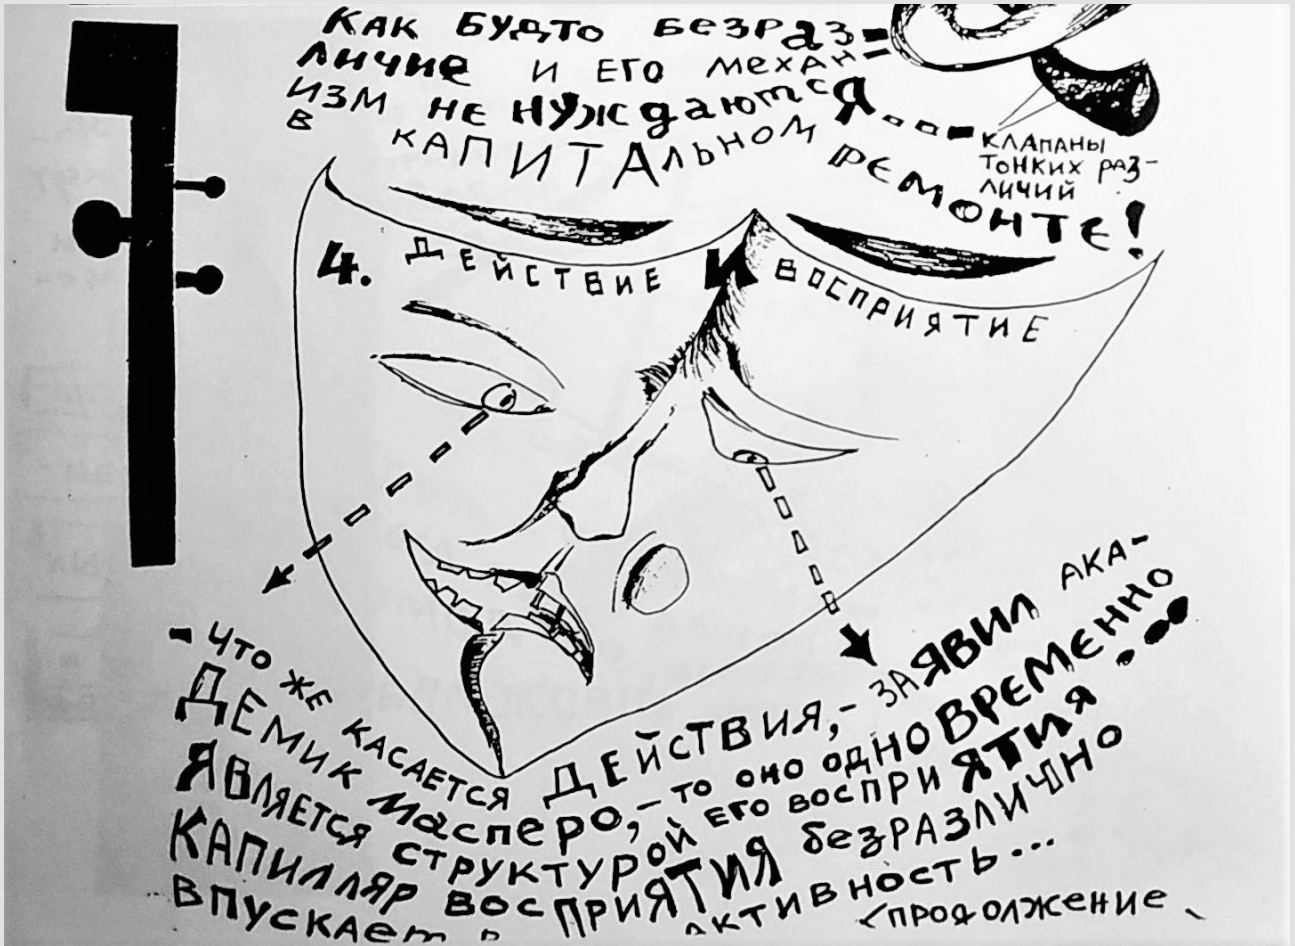 Как будто безраз=
личие и его механ=
изм не нуждаются...
в капитальном ремонте!
клапаны
тонких раз-
личий
4. Действие и восприятие
- Что же касается действия, - заявил ака-
демик Масперо, - то оно одновременно
является структурой его восприятия...
капилляр восприятия безразлично
впускает активность...
(продолжение